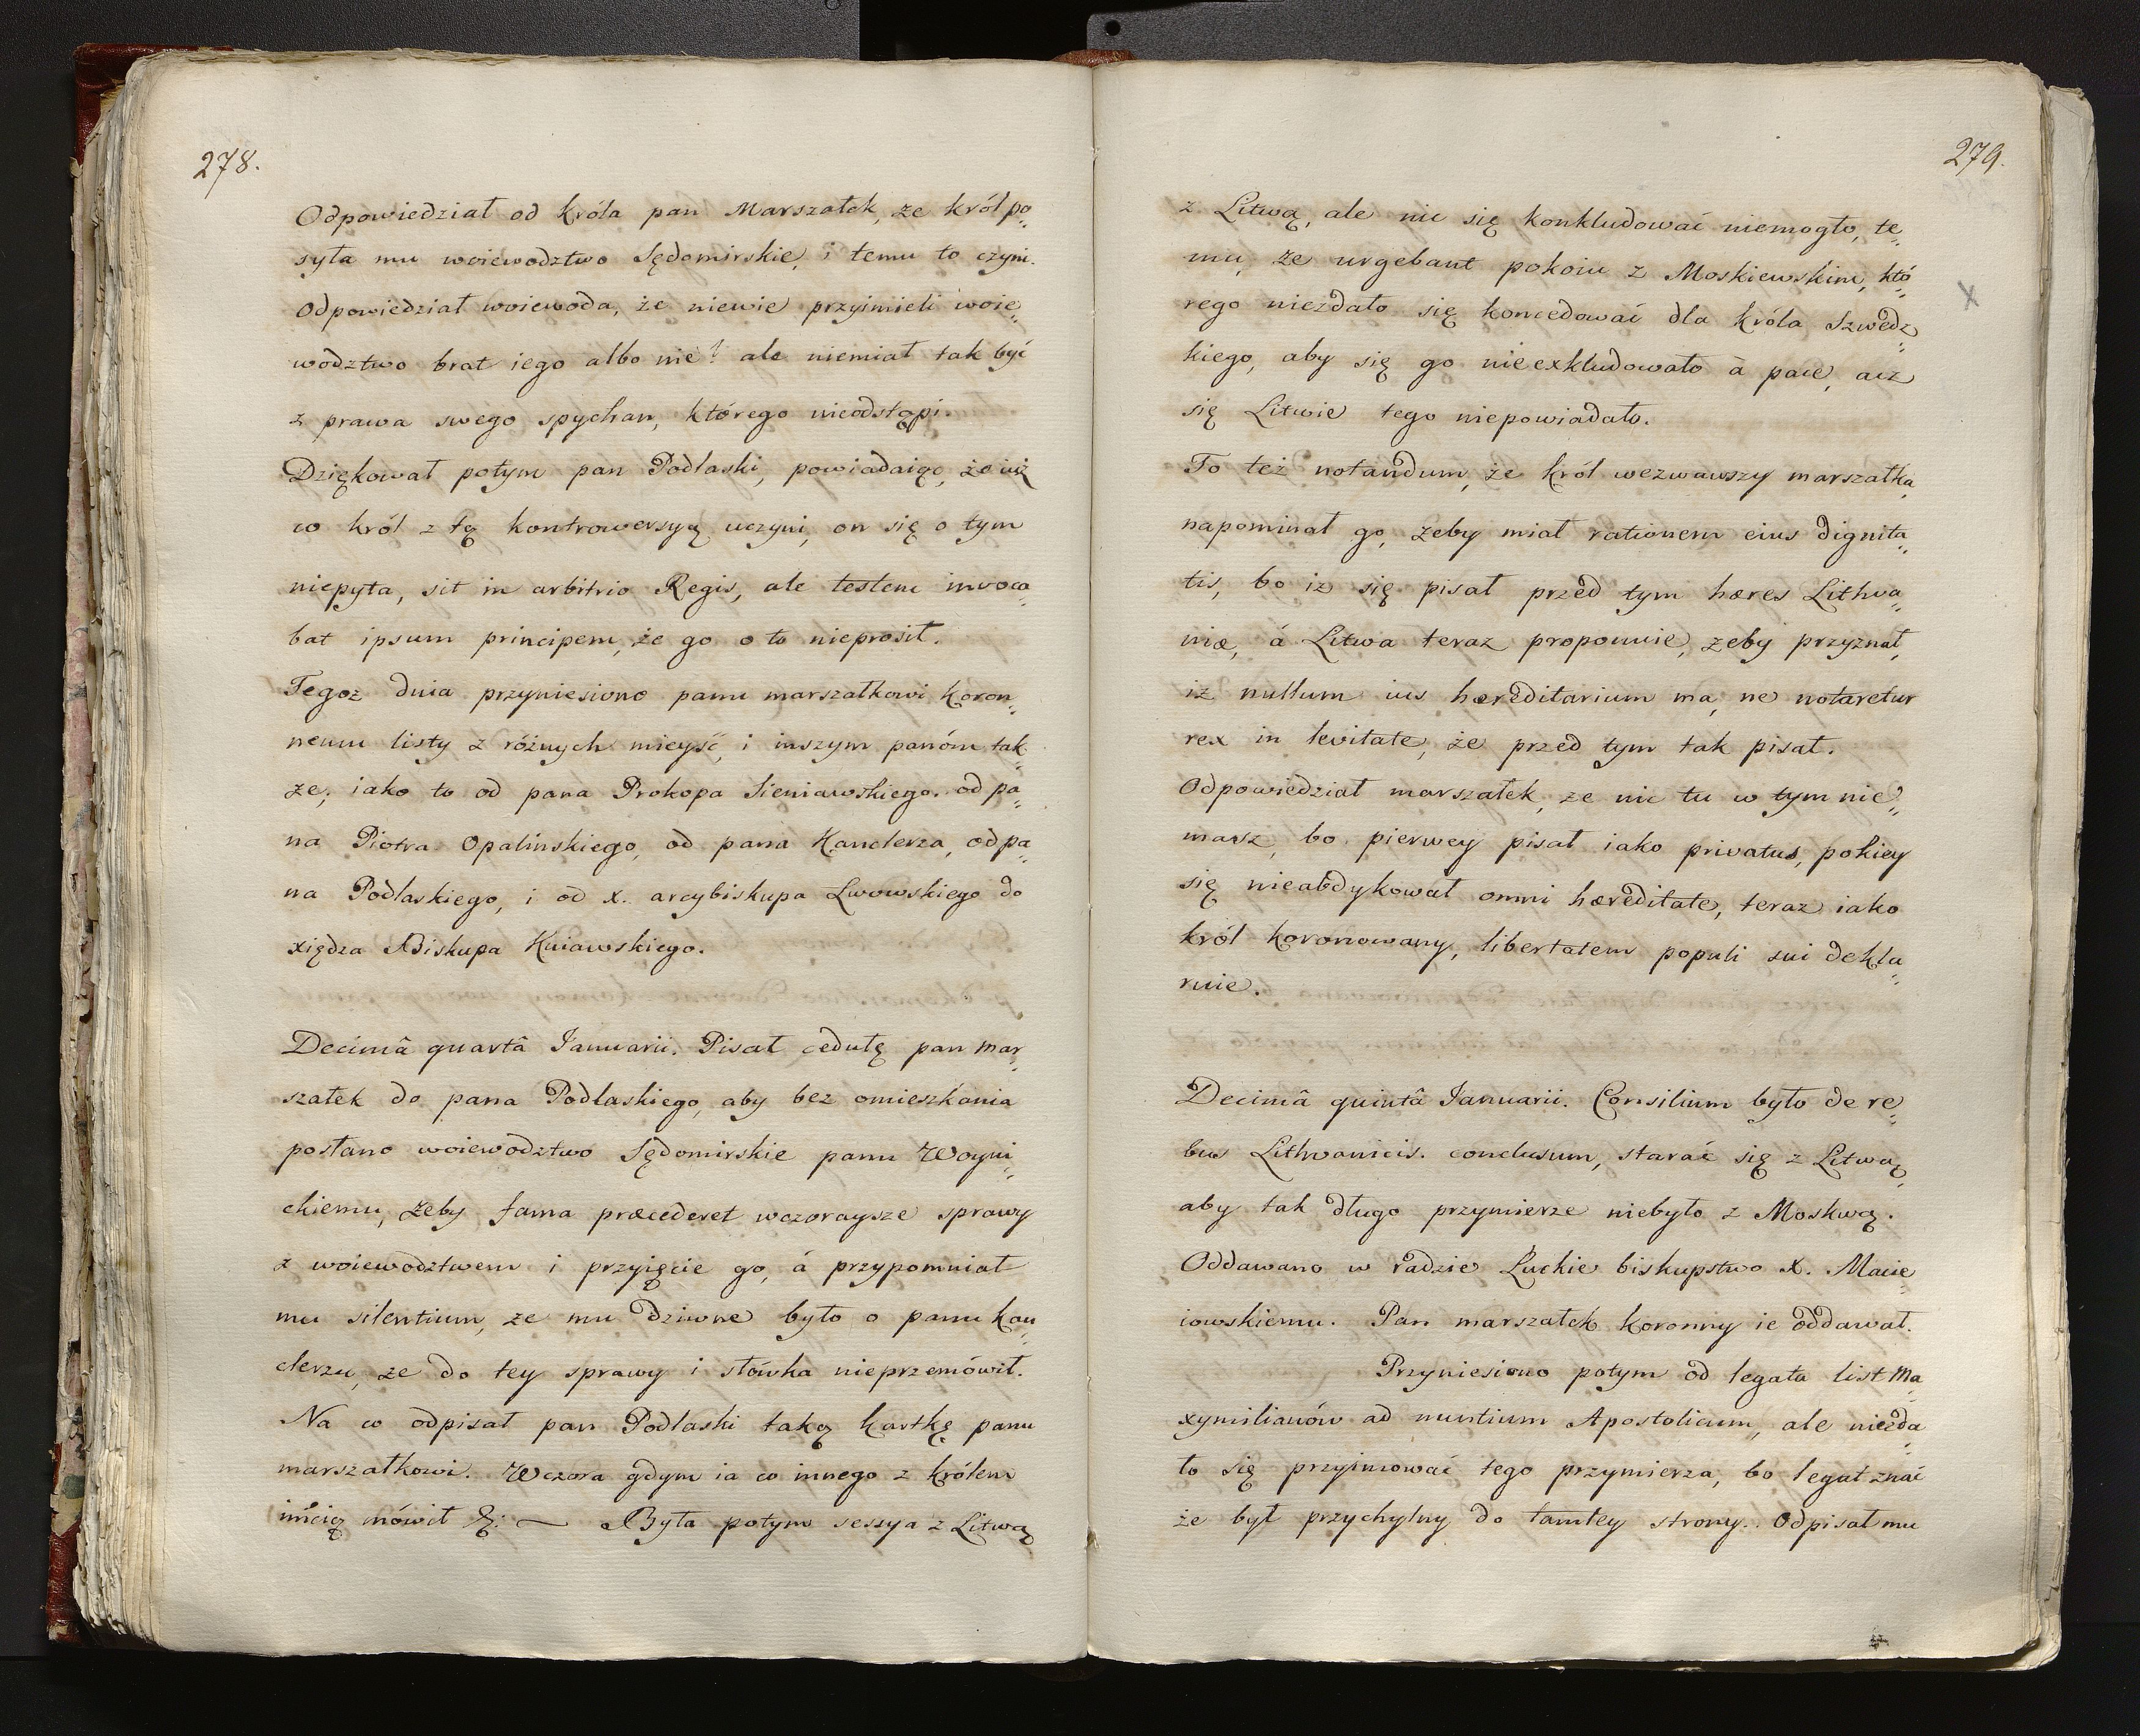 278.
Odpowiedział od króla pan Marszałek, że król po„
syła mu woiewodztwo Sędomirskie, i temu to czyni.
Odpowiedział woiewoda, że niewie przyimieli woie„
wodztwo brat iego albo nie? ale niemiał tak być
z prawa swego spychan, którego nieodstąpi.
Dziękował potym pan Podlaski, powiadaiąc, że iuż
co król z tą kontrowersyą uczyni, on się o tym
niepyta, sit in arbitrio Regis, ale testem invoca„
bat ipsum principem, że go o to nieprosił.
Tegoż dnia przyniesiono panu marszałkowi koron„
nemu listy z różnych mieysć, i inszym panóm tak
że, iako to od pana Prokopa Sieniawskiego. od pa„
na Piotra Opalińskiego, od pana Kanclerza, od pa„
na Podlaskiego, i od x. arcybiskupa Lwowskiego do
xiędza Biskupa Kuiawskiego.
Decimâ quartâ Januarii. Pisał cedułę pan mar„
szałek do pana Podlaskiego, aby bez omieszkania
posłano woiewodztwo Sędomirskie panu Woyni„
ckiemu, żeby fama præcederet wczoraysze sprawy
z woiewodztwem i przyięcie go, á przypomniał
mu silentium, że mu dziwne było o panu kan„
clerzu, że do tey sprawy i słówka nieprzemówił.
Na co odpisał pan Podlaski taką kartkę panu
marszałkowi. Wczora gdym ia co innego z królem
imcią mówił &: — Była potym sessya z Litwą
279.
z Litwą, ale nic się konkludować niemogło, te„
mu, że urgebant pokoiu z Moskiewskim, któ„
rego niezdało się koncedować dla króla Szwedz„
kiego, aby się go nieexkludowało à pace, acz
się Litwie tego niepowiadało.
To też notandum, że król wezwawszy marszałka,
napominał go, żeby miał rationem eius dignita„
tis, bo iż się pisał przed tym hæres Lithva„
niæ, á Litwa teraz proponuie, żeby przyznał,
iż nullum ius hæreditarium ma, ne notaretur
rex in levitate, że przed tym tak pisał.
Odpowiedział marszałek, że nic tu w tym nie„
masz, bo pierwey pisał iako privatus, pokiey
się nieabdykował omni hæreditate, teraz iako
król koronowany, libertatem populi sui dekla„
ruie.
Decimâ quintâ Januarii. Consilium było de re„
bus Lithvanicis. conclusum, starać się z Litwą,
aby tak długo przymierze niebyło z Moskwą.
Oddawano w radzie Łuckie biskupstwo X. Macie„
iowskiemu. Pan marszałek koronny ie oddawał.
Przyniesiono potym od legata list Ma„
xymilianów ad nuntium Apostolicum, ale niezda„
ło się przyimować tego przymierza, bo legat znać
że był przychylny do tamtey strony. Odpisał mu